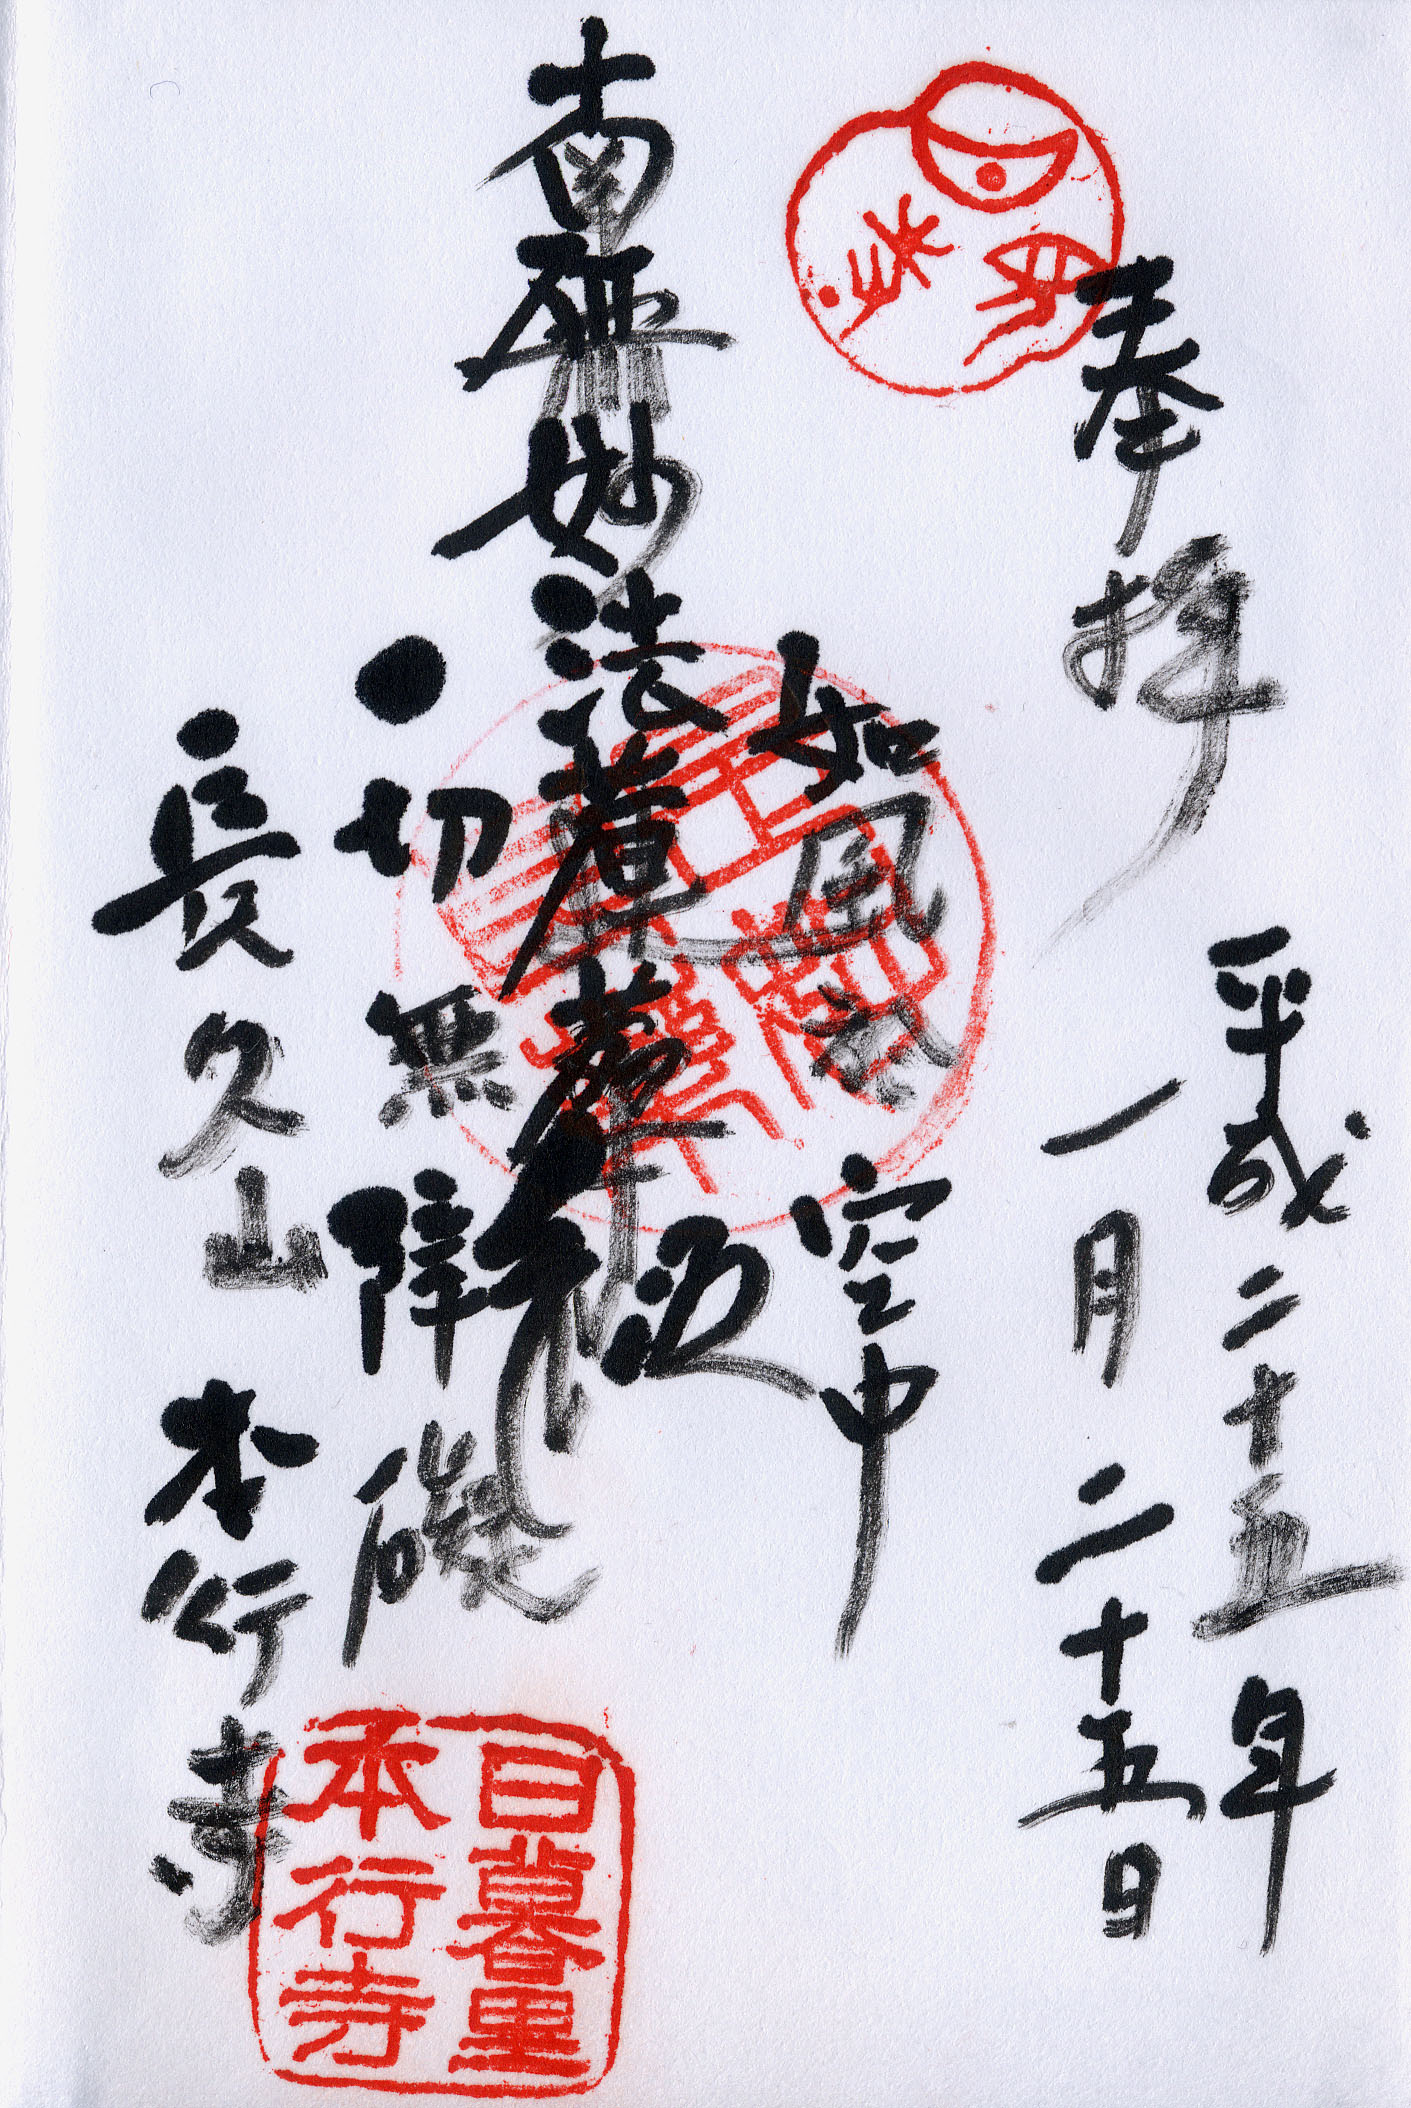 奉拝
平成二十五年
一月二十五日
如風於空中
南無妙法蓮華経
一切無障礙
長久山
本行寺
日暮里
本行寺